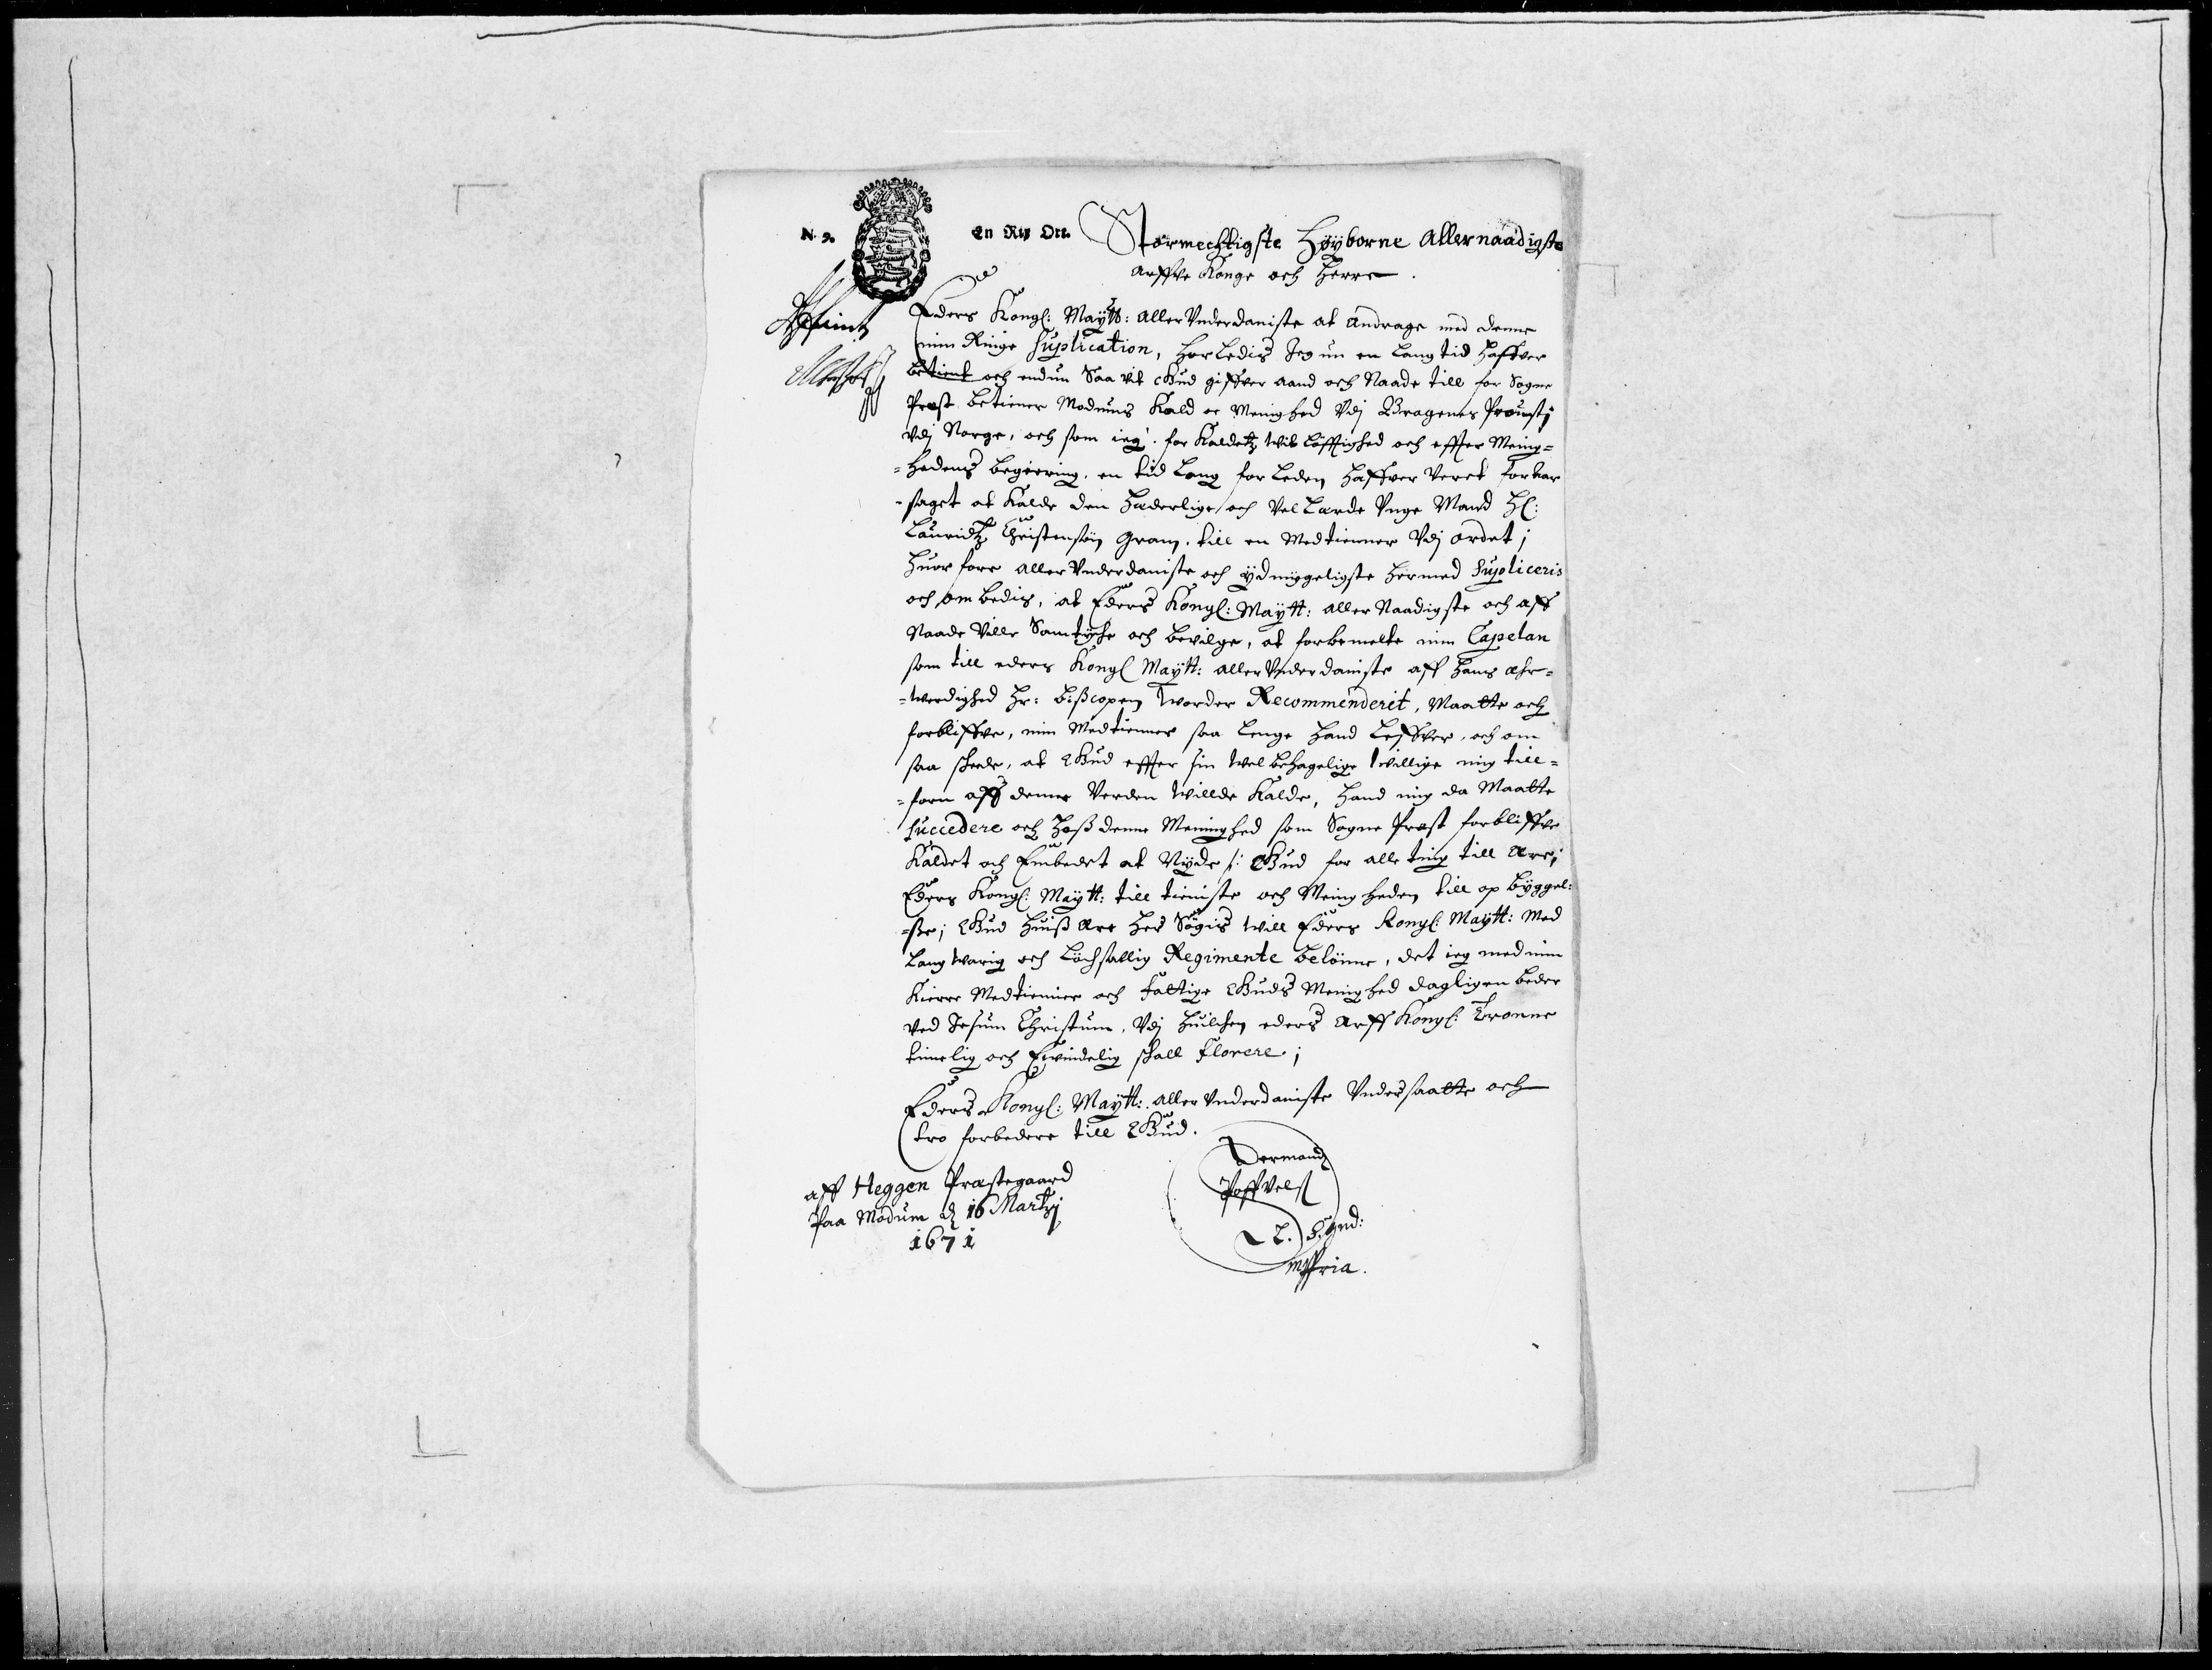 N. 9.
En Rix Ort.
Stormechtigste Höyborne Allernaadigste
Arffve Konge och Herre
Eders Kongl: Maytt: aller Vnderdaniste at Andrage med denne
min Ringe Suplication, hor Ledis Jeg nu en Lang tid haffver
betient och endnu Saa vit Gud giffver aand och Naade till for Sogne
Præst betiener Modums Kald oc Menighed Vdj Bragenes Proustj
Vdj Norge, och som ieg for Kaldetz Vitløfftighed och effter Menig=
=hedens begiering, en tid Lang for Leden haffver veret foraar
=saget at Kalde den Hæderlige och Vel Lærde Vnge Mand Hl:
Lauridtz Christensøn Gram till en Medtienner Vdj Ordet;
Huor fore aller Vnderdaniste och ydmygeligste hermed Supliceris
och ombedis, at Eders Kongl: Maytt: aller Naadigste och aff
Naade Ville Samtyche och bevilge, at forbemelte min Capelan
som till eders Kongl Maytt: aller Vnderdaniste aff hans ehr=
=werdighed Hr: Bißcopen worder Recommenderit, Maatte och
forbliffve, min Medtienner saa Lenge hand Leffver, och om
saa skeede, at Gud effter sin Vel behagelige Villige mig till=
=forn aff denne Verden Villde Kalde, hand mig da Maatte
Succedere och hoß denne Menighed som Sogne Præst forbliffve
Kaldet och Embedet at Nyde /: Gud for alle ting till Ære,
Eders Kongl: Maytt: till tieniste och Menigheden till op byggel=
=ße; Gud huiß Ære her Søgis Vill Eders Kongl: Maytt: Med
Lang Varig och Löchsallig Regimente belønne, det ieg med min
Kiere Medtienner och fattige Guds Menighed dagligen beder
ved Jesum Christum, Vdj huilchen eders Arff Kongl: Tronne
timelig och Ewindelig skall florere;
Eders Kongl: Maytt: aller Vnderdaniste Vndersaatte och
tro forbedere till Gud.
aff Heggen Præstegaard
Paa Modum d 16 Martzj
1671
Hermand
Poffvels
mppria.